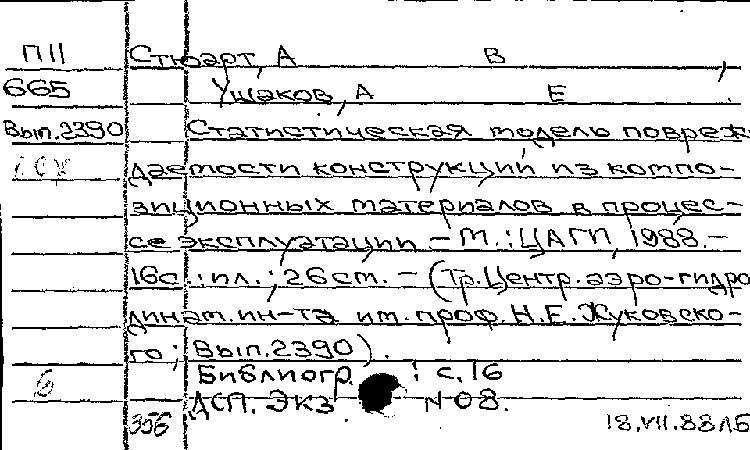 П11 Стюарт, А В
665 Ушаков, А Е
Вып.2390 Статистическая модель повреж-
даемости конструкций из компо-
зиционных материалов в процес-
се эксплуатации. – М.: ЦАГИ, 1988. –
16с.: ил.; 26см. – (Тр. Центр. аэро-гидро
динам. ин-та им. проф. Н.Е. Жуковско-
го; Вып.2390).
Библиогр. : с.16
ДСП. Экз N 08.
356 18.VII.88